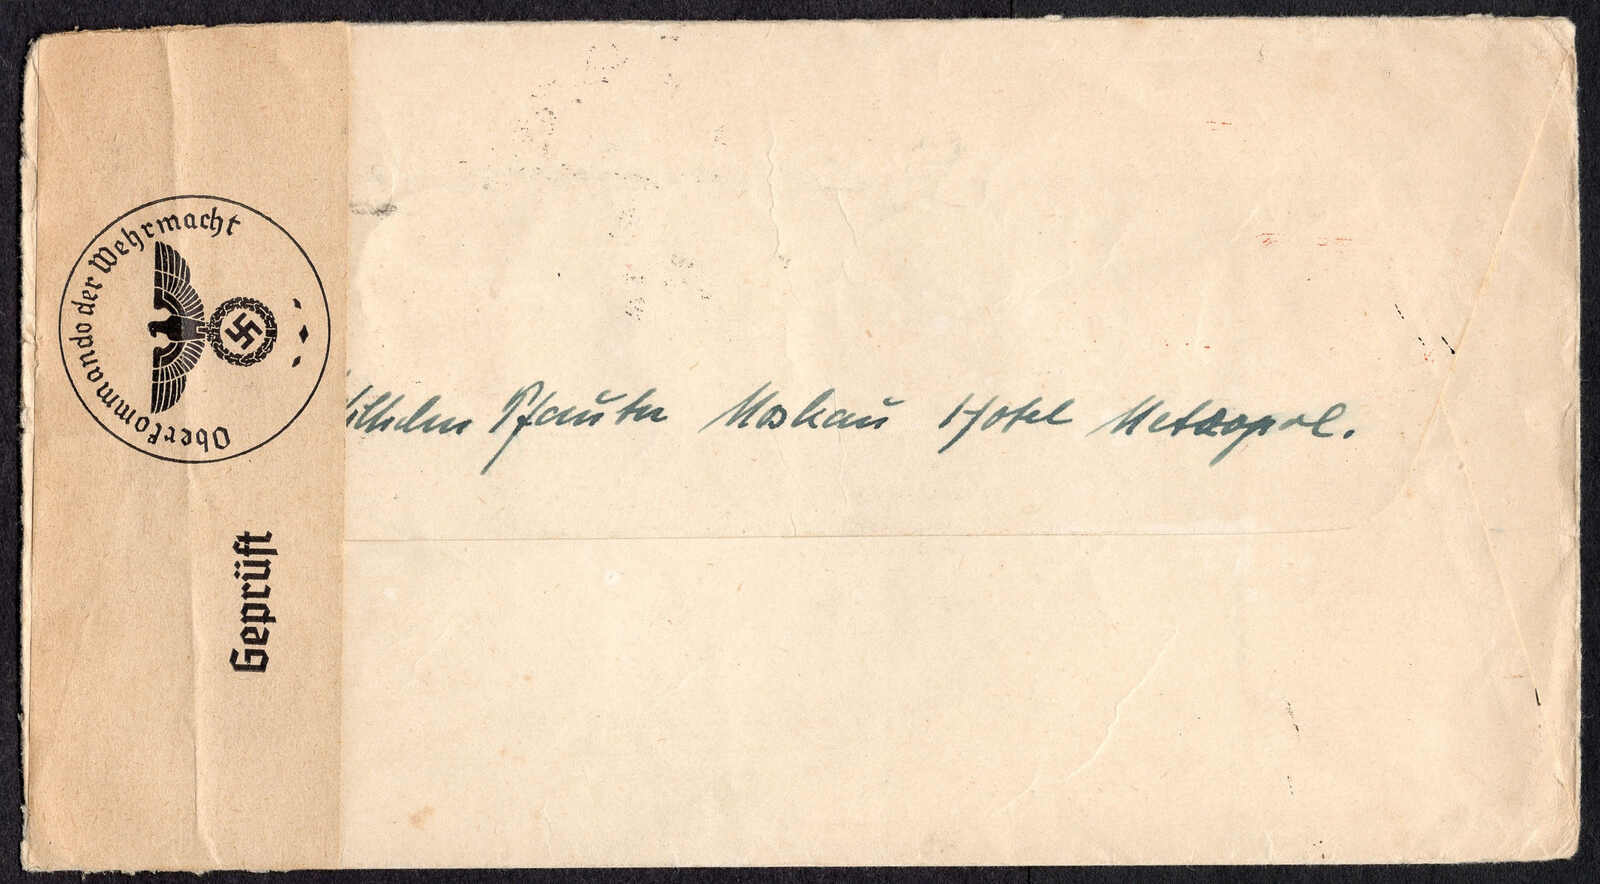 Oberkommando der Wehrmacht
Geprüft
Wilhelm Pfauter Moskau Hotel Metropol.